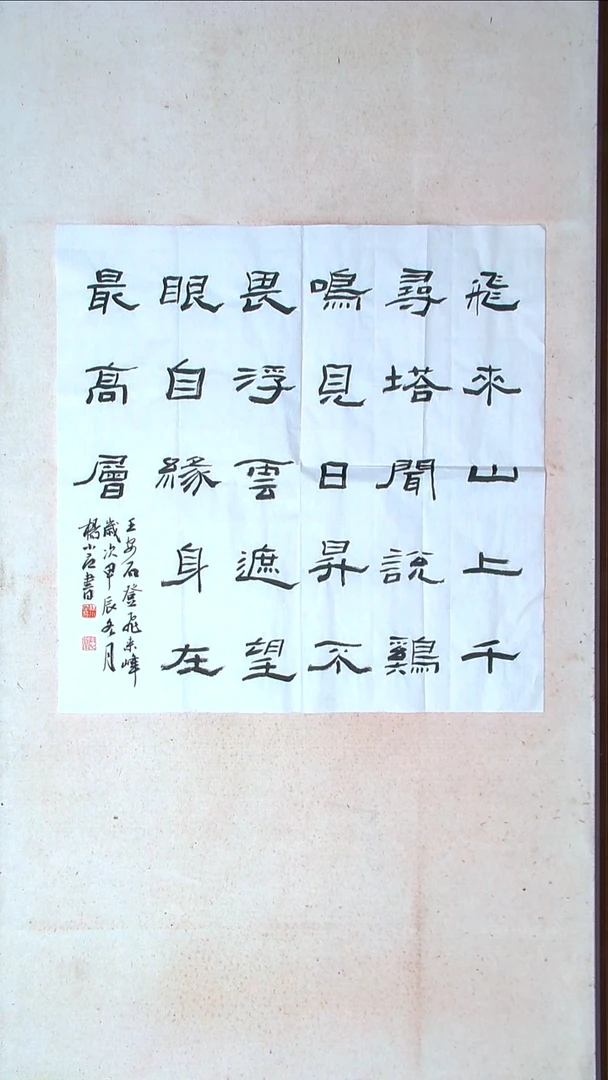 飛來山上千
尋塔聞說鷄
鳴見日昇不
畏浮雲遮望
眼自緣身在
最高層
王安石登飛來峰
歲次甲辰冬月
楊小言書